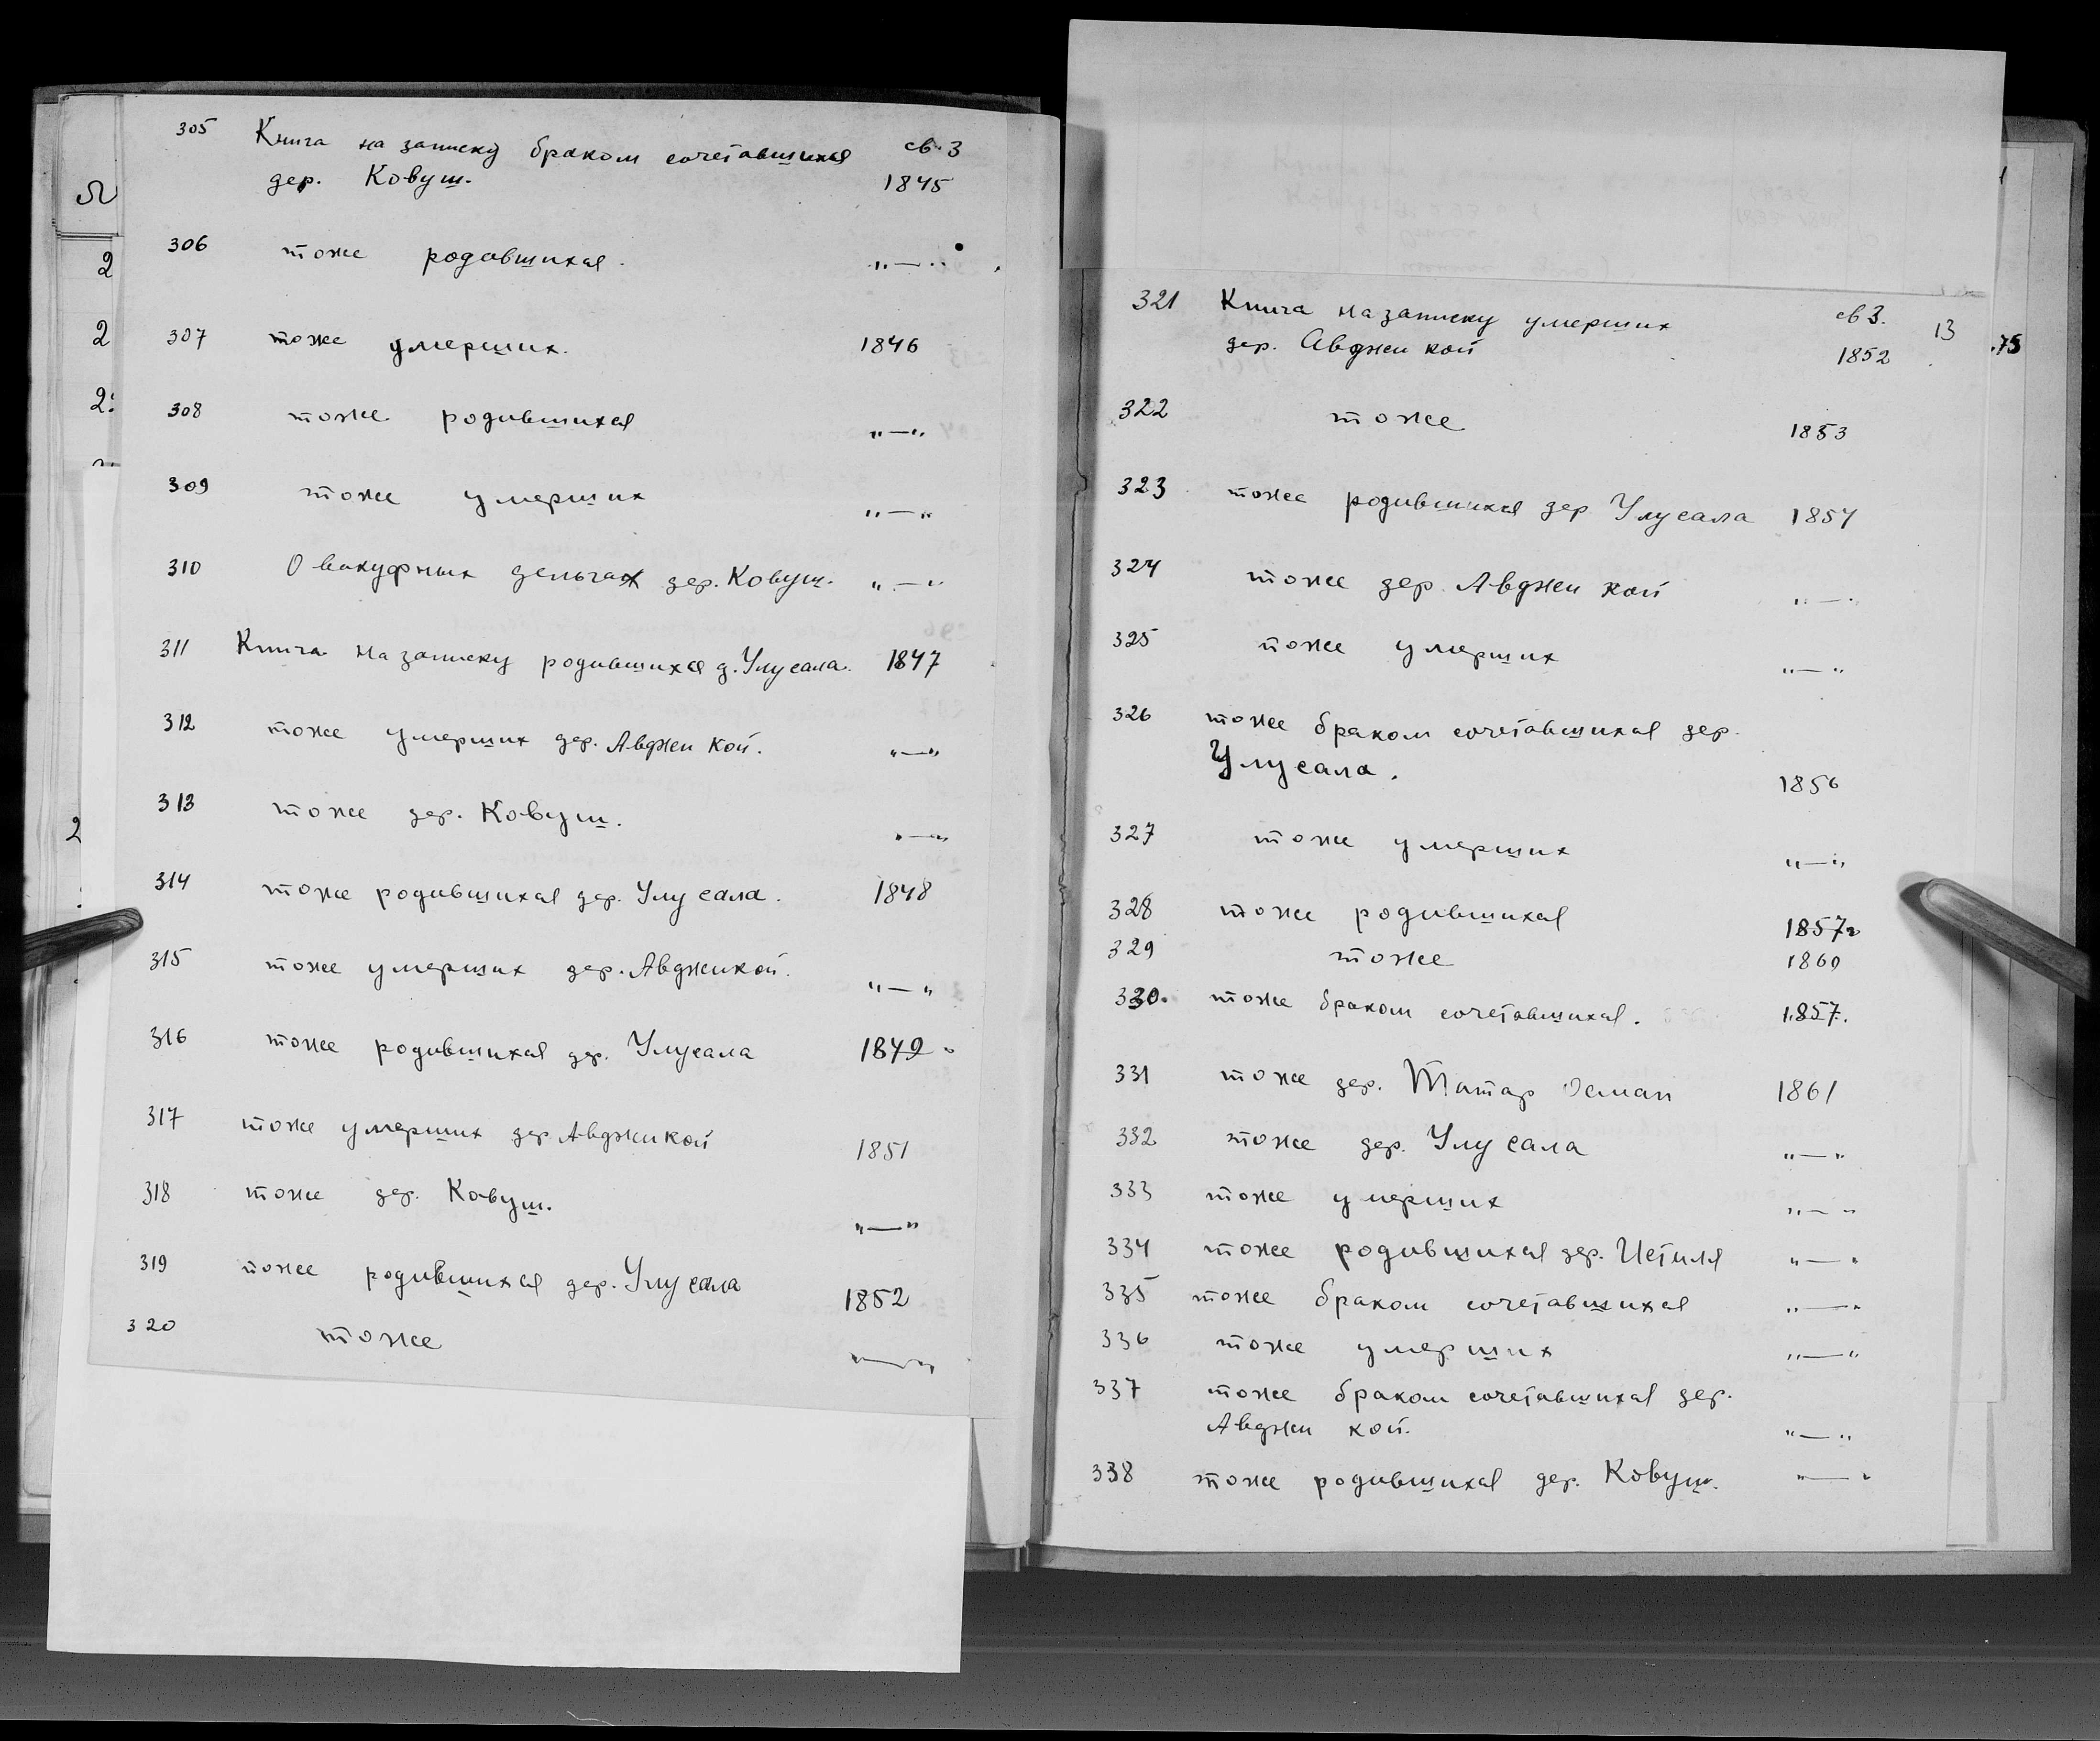 305 Книга на записку браком сочетавшихся св. 3
дер. Ковуш. 1845
306 тоже родившихся. „—„
307 тоже умерших. 1846
308 тоже родившихся „—„
309 тоже умерших „—„
310 О вакуфных деньгах дер. Ковуш. „—„
311 Книга на записку родившихся д. Улусала. 1847
312 тоже умерших дер. Авджи кой. „—„
313 тоже дер. Ковуш. „—„
314 тоже родившихся дер. Улу сала. 1848
315 тоже умерших дер. Авджикой. „—„
316 тоже родившихся дер. Улусала 1849
317 тоже умерших дер Авджикой 1851
318 тоже дер. Ковуш. „—„
319 тоже родившихся дер. Улу сала 1852
320 тоже „—„
321 Книга на записку умерших св 3. 13
дер. Авджи кой 1852
322 тоже 1853
323 тоже родившихся дер Улусала 1854
324 тоже дер. Авджи кой „—„
325 тоже умерших „—„
326 тоже браком сочетавшихся дер.
Улусала. 1856
327 тоже умерших „—„
328 тоже родившихся 1857г
329 тоже 1860
330. тоже браком сочетавшихся. 1857.
331 тоже дер. Татар Осман 1861
332 тоже дер. Улу сала „—„
333 тоже умерших „—„
334 тоже родившихся дер. Истиля „—„
335 тоже браком сочетавшихся „—„
336 тоже умерших „—„
337 тоже браком сочетавшихся дер.
Авджи кой. „—„
338 тоже родившихся дер. Ковуш. „—„